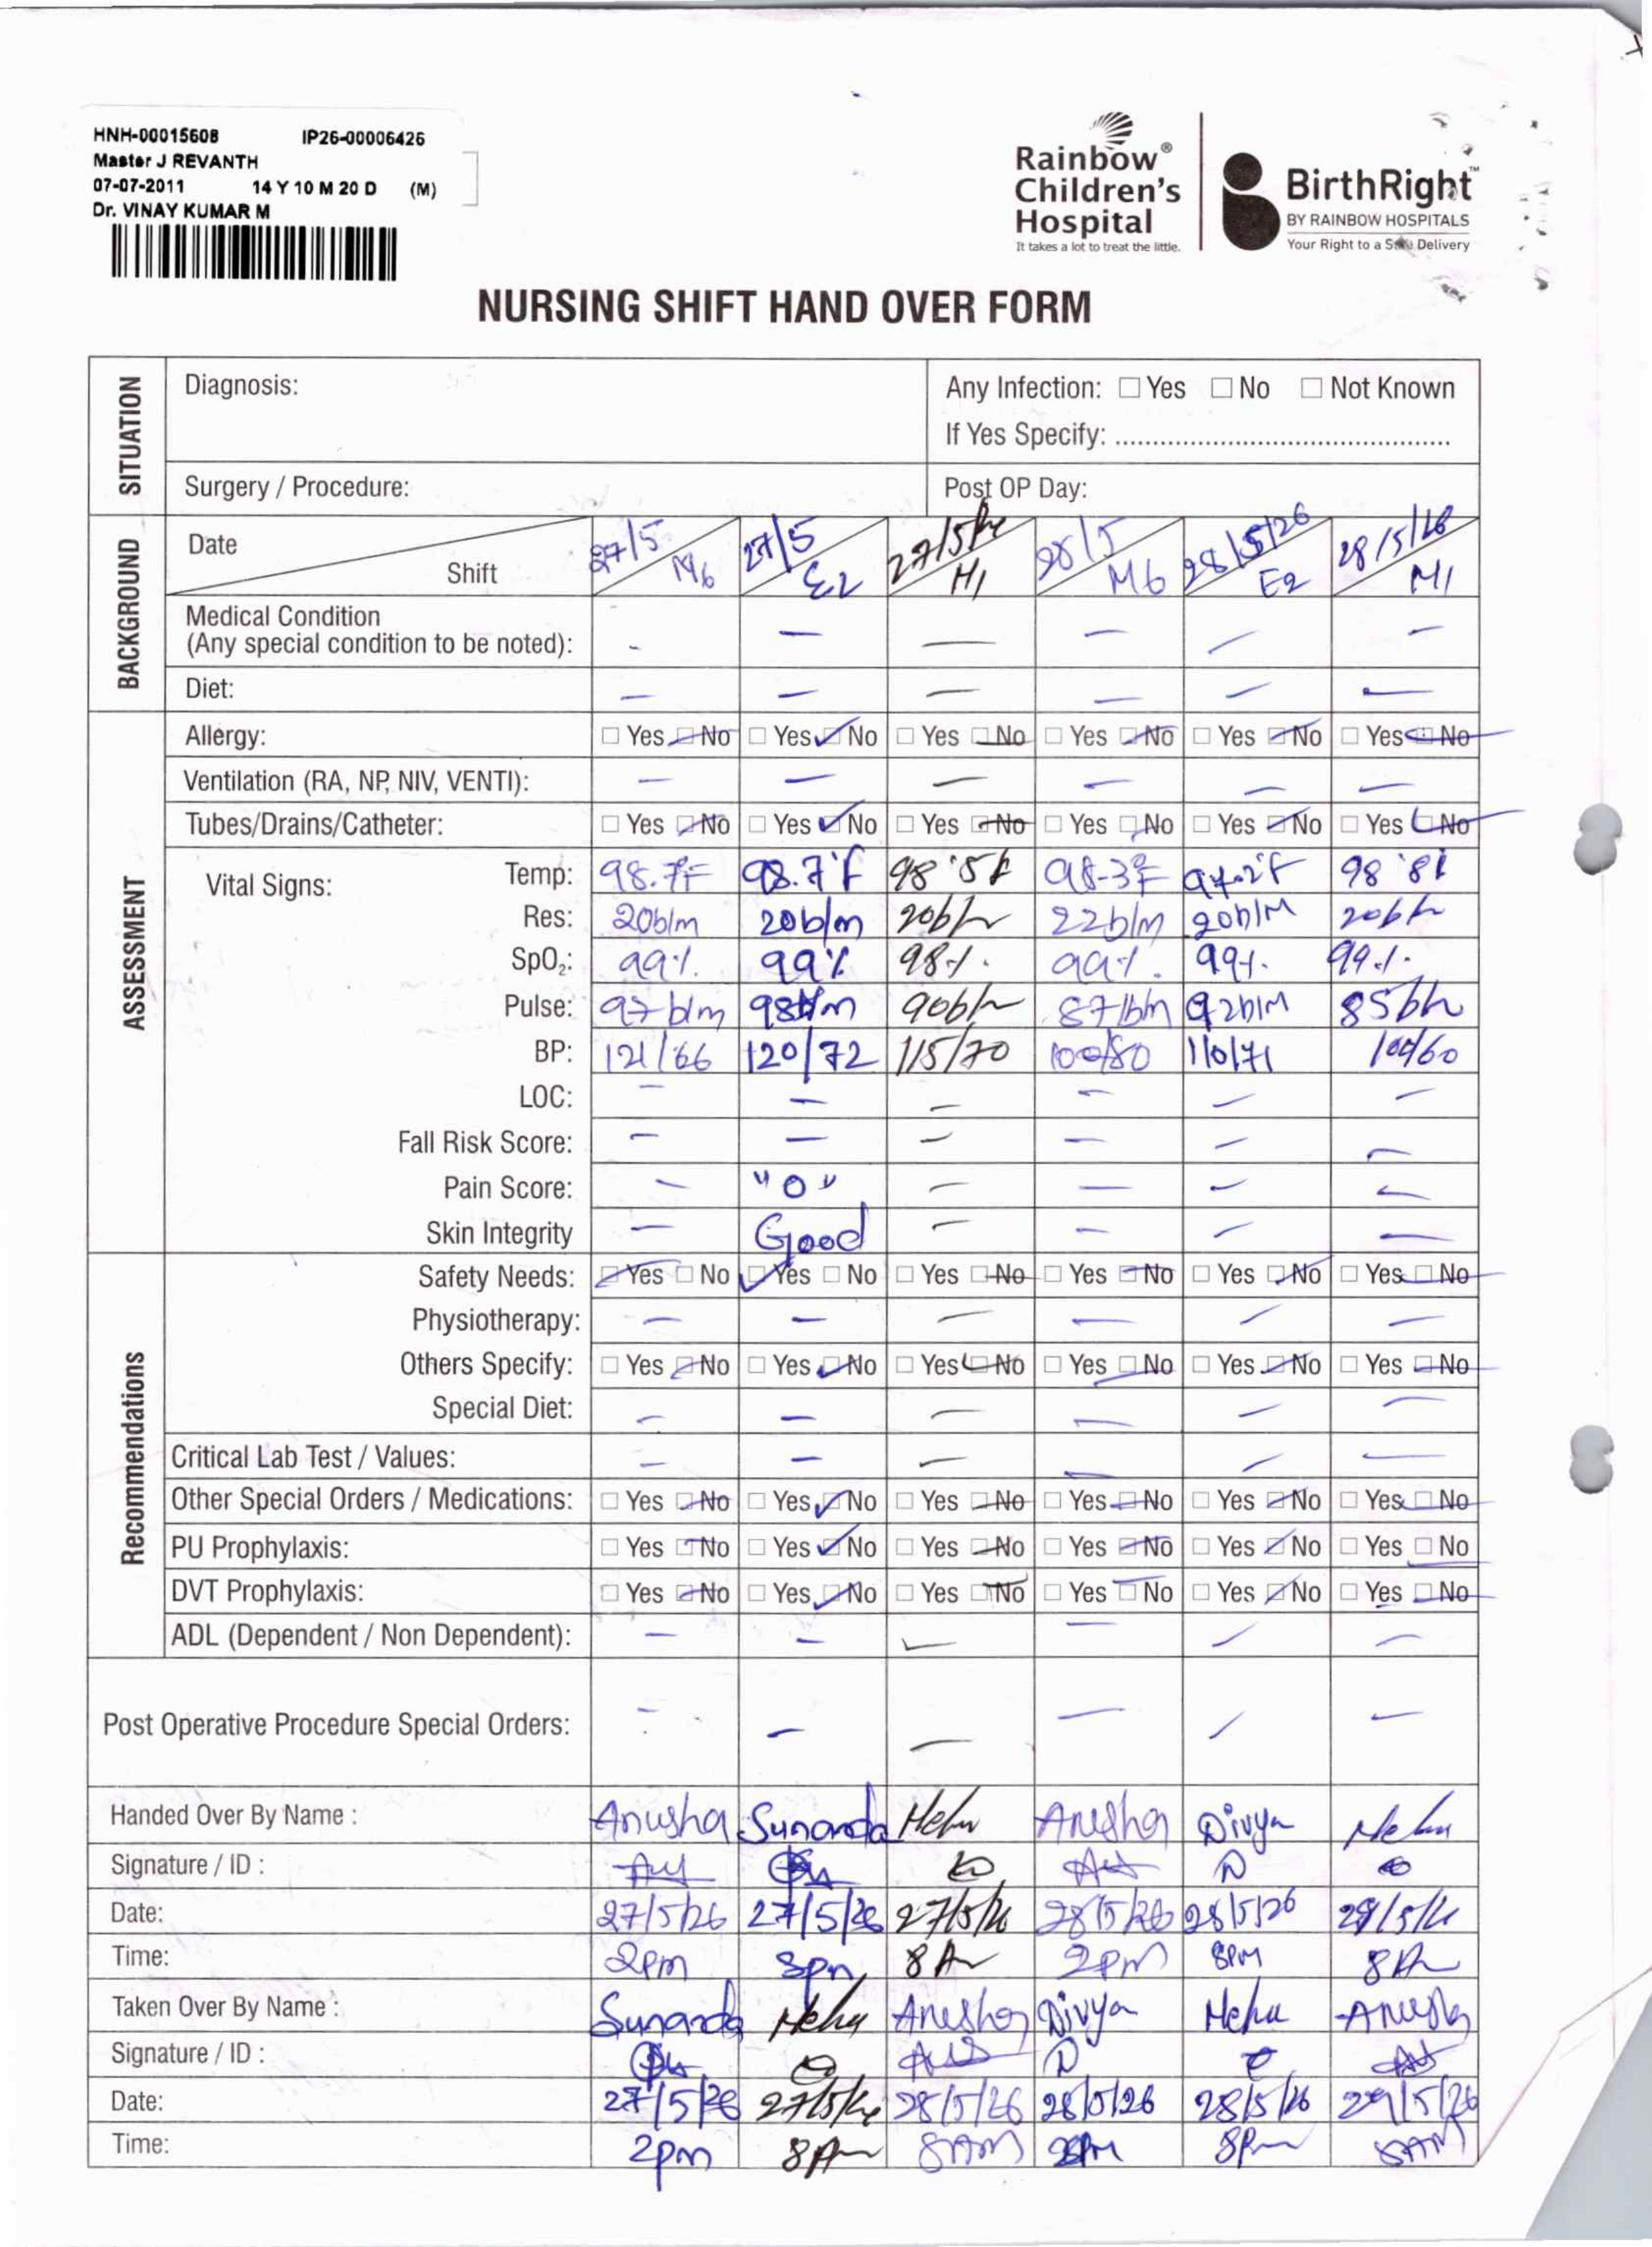 HNH-00015608 IP26-00006426
Master J REVANTH
07-07-2011 14 Y 10 M 20 D (M)
Dr. VINAY KUMAR M
Rainbow®
Children's
Hospital
It takes a lot to treat the little.
BirthRight™
BY RAINBOW HOSPITALS
Your Right to a Safe Delivery
NURSING SHIFT HAND OVER FORM
SITUATION
Diagnosis: Any Infection: ☐ Yes ☐ No ☐ Not Known
If Yes Specify: ............................................
Surgery / Procedure: Post OP Day:
BACKGROUND
Date 27/5 27/5 27/5/26 28/5 28/5/26 28/5/26
Shift M6 E2 N1 M6 E2 N1
Medical Condition
(Any special condition to be noted): - - - - - -
Diet: - - - - - -
ASSESSMENT
Allergy: ☐ Yes ☑ No ☐ Yes ☑ No ☐ Yes ☑ No ☐ Yes ☑ No ☐ Yes ☑ No ☐ Yes ☑ No
Ventilation (RA, NP, NIV, VENTI): - - - - - -
Tubes/Drains/Catheter: ☐ Yes ☑ No ☐ Yes ☑ No ☐ Yes ☑ No ☐ Yes ☑ No ☐ Yes ☑ No ☐ Yes ☑ No
Vital Signs: Temp: 98.7°F 98.7°F 98.5F 98.3°F 97.2°F 98.8F
Res: 20b/m 20b/m 20b/m 22b/m 20b/M 20b/m
SpO₂: 99% 99% 98% 99% 99% 99%
Pulse: 97b/m 98b/m 90b/m 87b/m 92b/M 85b/m
BP: 121/66 120/72 115/70 100/80 110/71 100/60
LOC: - - - - - -
Fall Risk Score: - - - - - -
Pain Score: - "0" - - - -
Skin Integrity - Good - - - -
Recommendations
Safety Needs: ☑ Yes ☐ No ☑ Yes ☐ No ☐ Yes ☑ No ☐ Yes ☑ No ☐ Yes ☑ No ☐ Yes ☑ No
Physiotherapy: - - - - - -
Others Specify: ☐ Yes ☑ No ☐ Yes ☑ No ☐ Yes ☑ No ☐ Yes ☑ No ☐ Yes ☑ No ☐ Yes ☑ No
Special Diet: - - - - - -
Critical Lab Test / Values: - - - - - -
Other Special Orders / Medications: ☐ Yes ☑ No ☐ Yes ☑ No ☐ Yes ☑ No ☐ Yes ☑ No ☐ Yes ☑ No ☐ Yes ☑ No
PU Prophylaxis: ☐ Yes ☑ No ☐ Yes ☑ No ☐ Yes ☑ No ☐ Yes ☑ No ☐ Yes ☑ No ☐ Yes ☑ No
DVT Prophylaxis: ☐ Yes ☑ No ☐ Yes ☑ No ☐ Yes ☑ No ☐ Yes ☑ No ☐ Yes ☑ No ☐ Yes ☑ No
ADL (Dependent / Non Dependent): - - - - - -
Post Operative Procedure Special Orders: - - - - - -
Handed Over By Name : Anusha Sunanda Anusha Divya
Signature / ID :
Date: 27/5/26 27/5/26 27/5/26 28/5/26 28/5/26 29/5/26
Time: 2pm 8pm 8Am 2pm 8PM 8Am
Taken Over By Name : Sunanda Anusha Divya Anusha
Signature / ID :
Date: 27/5/26 27/5/26 28/5/26 28/5/26 28/5/26 29/5/26
Time: 2pm 8Pm 8AM 2PM 8Pm 8AM